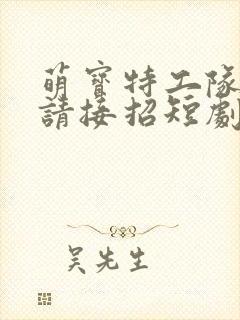 萌寶特工隊
請接招短劇
吳先生